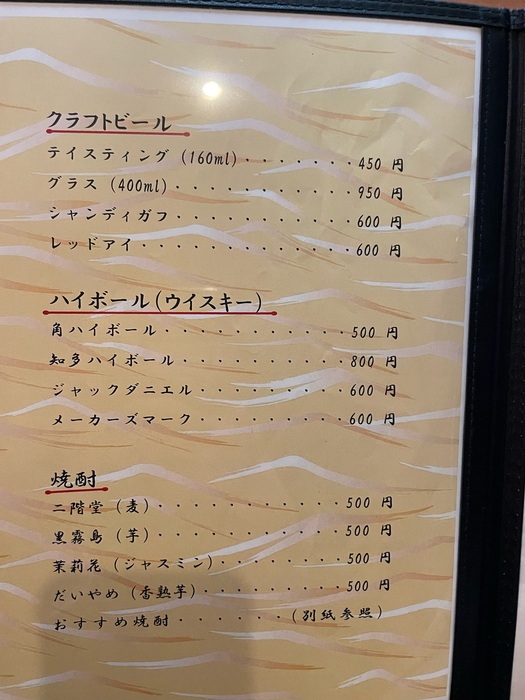 クラフトビール
テイスティング (160ml)・・・・・・・450 円
グラス (400ml)・・・・・・・・・・・950 円
シャンディガフ・・・・・・・・・・・600 円
レッドアイ・・・・・・・・・・・・・600 円
ハイボール(ウイスキー)
角ハイボール・・・・・・・・・・・・500 円
知多ハイボール・・・・・・・・・・・800 円
ジャックダニエル・・・・・・・・・・600 円
メーカーズマーク・・・・・・・・・・600 円
焼酎
二階堂 (麦)・・・・・・・・・・・・500 円
黒霧島 (芋)・・・・・・・・・・・・500 円
茉莉花 (ジャスミン)・・・・・・・・500 円
だいやめ (香熟芋)・・・・・・・・・500 円
おすすめ焼酎・・・・・・・(別紙参照)